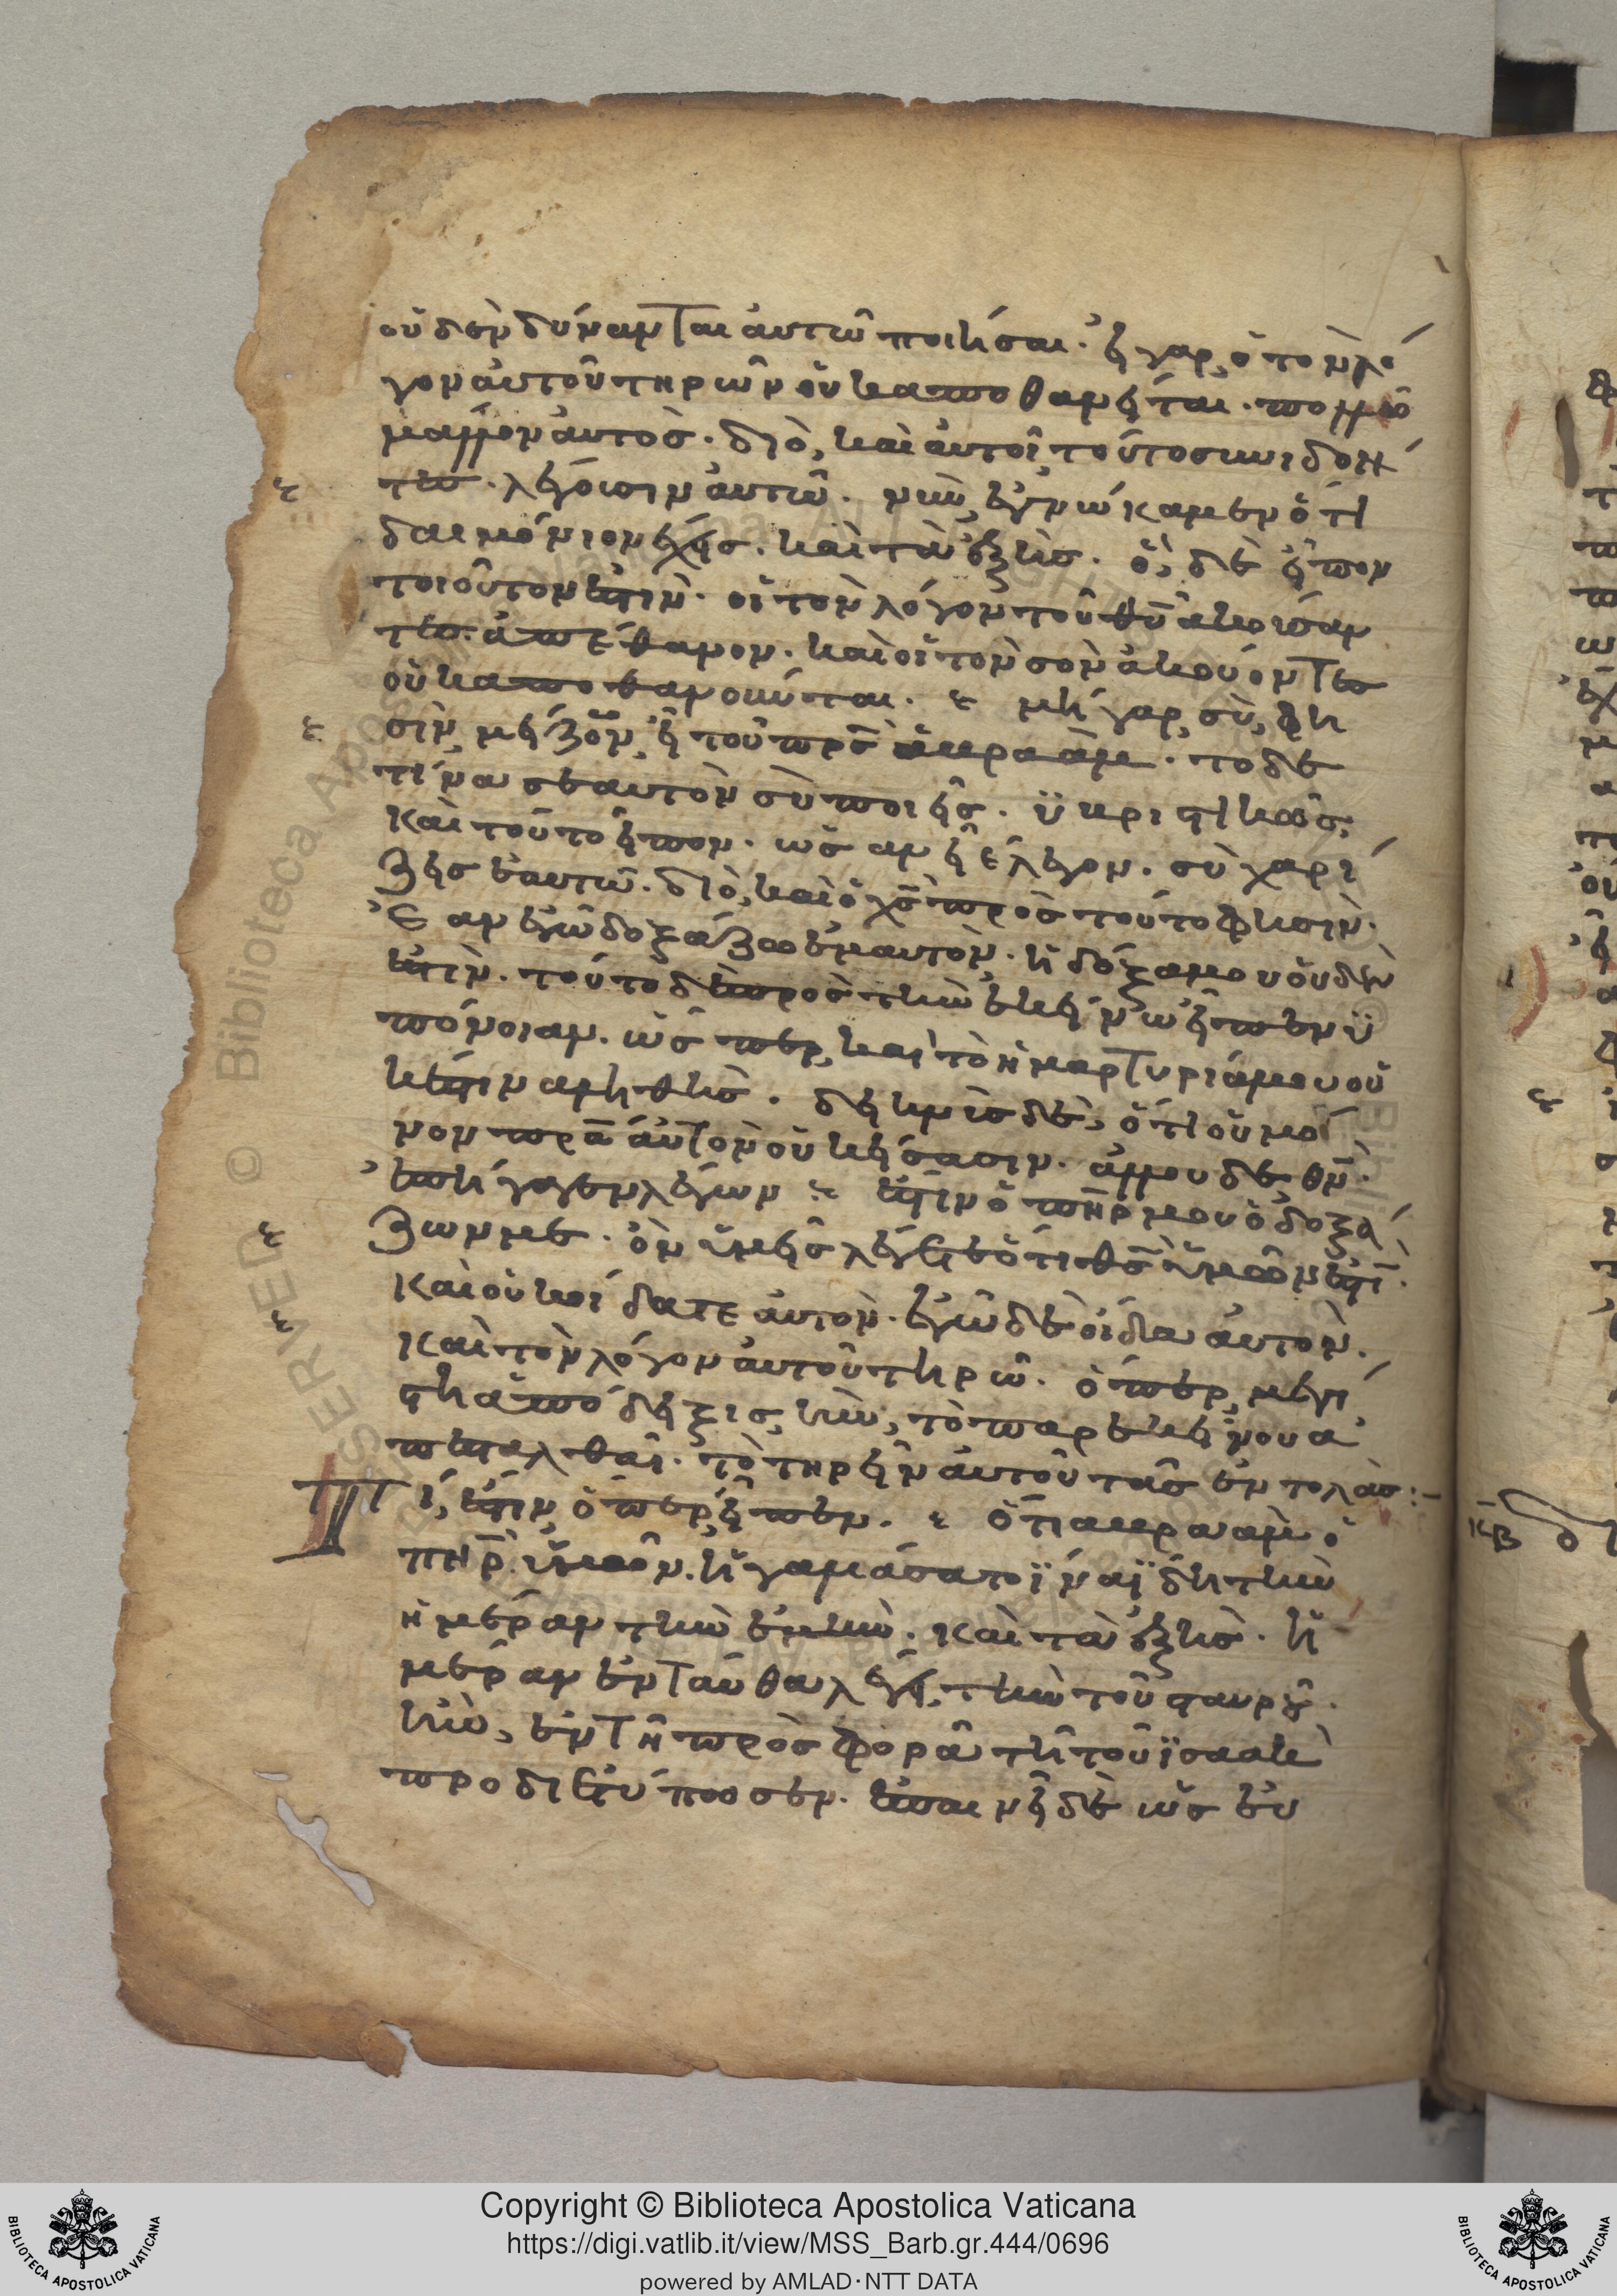 οὐδὲν δύνανται αὐτῶ ποιῆσαι· εἰ γὰρ ὁ τὸν λό
γον αὐτοῦ τηρῶν οὐκ ἀποθανεῖται· πολλῶ
μᾶλλον αὐτὸς· διὸ καὶ αὐτοὶ τοῦτο συνιδόν
τες· λέγουσιν αὐτῶ· νῦν ἐγνώκαμεν ὅτι
δαιμόνιον ἔχεις· καὶ τὰ ἑξῆς· ὃ δὲ εἶπον
τοιοῦτον ἐστὶν· οἱ τὸν λόγον τοῦ θῦ ἀκούσαν
τες ἀπέθανον· καὶ οἱ τὸν σὸν ἀκούοντες
οὐκ ἀποθανοῦνται· μὴ γὰρ σὺ φη
σὶν μείζων εἶ τοῦ πρς ἀβραάμ· τὸ δὲ
τίνα σεαυτὸν σὺ ποιεῖς· ὑβριστικῶς
καὶ τοῦτο εἶπον· ὡς ἂν εἰ ἔλεγον· σὺ χαρί
ζεις ἑαυτῶ· διὸ καὶ ὁ χς πρὸς τοῦτο φησὶν·
ἐὰν ἐγὼ δοξάζω ἐμαυτὸν· ἡ δόξα μου οὐδέν
ἐστὶν· τοῦτο δὲ πρὸς τὴν ἐκείνω εἶπεν ὑ
πόνοιαν· ὥσπερ καὶ τὸ ἡ μαρτυρία μου οὐ
κ ἔστιν ἀληθὴς· δείκνυσι δὲ ὅτι οὐ μό
νον πρα αὐτὸν οὐκ εἴσασιν· ἀλλ' οὐδὲ θν·
ἐπήγαγεν λέγων ἔστιν ὁ πηρ μου ὁ δοξά
ζων με· ὃν ὑμεῖς λέγετε ὅτι θς ὑμῶν ἐστὶ·
καὶ οὐκ οἴδατε αὐτὸν· ἐγὼ δὲ οἶδα αὐτὸν·
καὶ τὸν λόγον αὐτοῦ τηρῶ· ὅπερ μεγί
στη ἀπόδειξις ἦν, τὸ παρ' ἐκείνου ἀ
πεσταλθαι· τὸ τηρεῖν αὐτοῦ τὰς ἐντολάς:-
Τί ἐστιν ὅπερ εἶπεν· ὅτι ἀβραὰμ ὁ
πηρ ὑμῶν· ἠγαλιάσατο ἵνα ἴδη τὴν
ἡμέραν τὴν ἐμὴν· καὶ τὰ ἑξῆς· ἡ
μέραν ἐνταῦθα λέγει τὴν τοῦ σταυροῦ·
ἣν ἐν τῆ προσφορᾶ τῆ τοῦ ἰσαὰκ
προδιετύπωσεν· ἐπαινεῖ δὲ ὡς εὐ
κβ